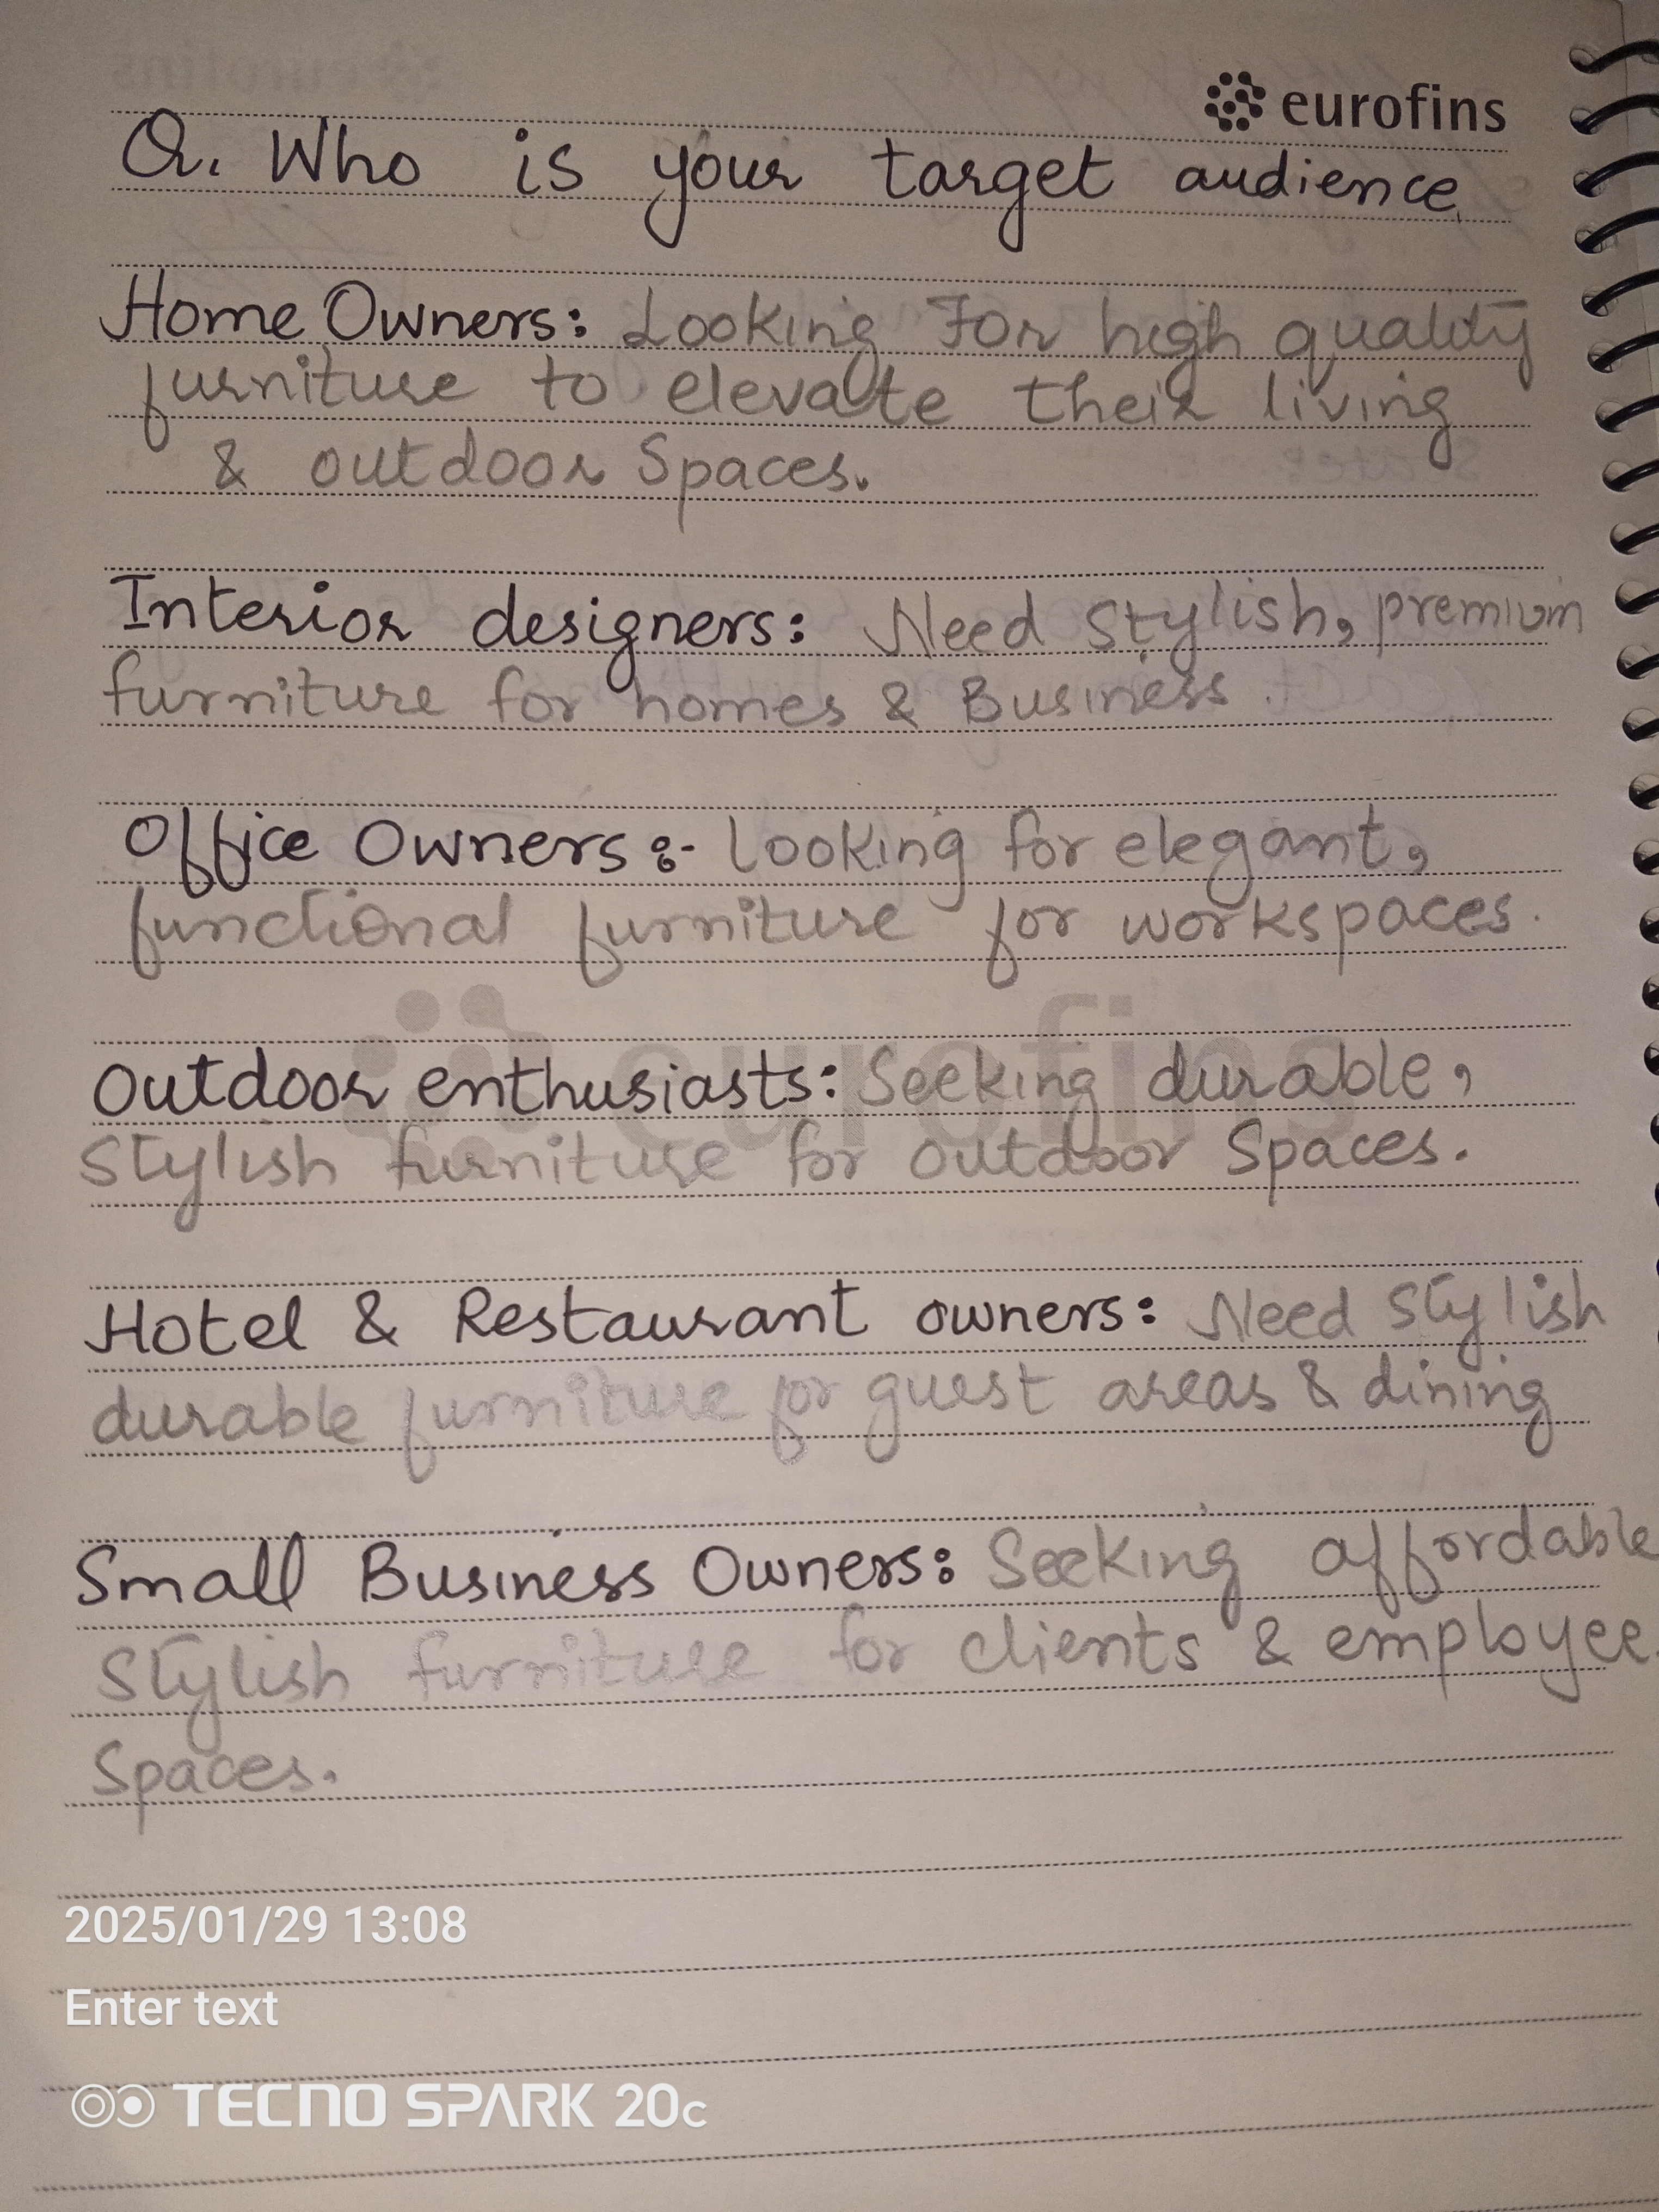 eurofins
Q. Who is your target audience
Home Owners: Looking For high quality
furniture to elevate their living
& outdoor Spaces.
Interior designers: Need stylish, premium
furniture for homes & Business.
Office Owners:- Looking for elegant,
functional furniture for workspaces.
eurofins
Outdoor enthusiasts: Seeking durable,
Stylish furniture for outdoor Spaces.
Hotel & Restaurant owners: Need Stylish
durable furniture for guest areas & dining
Small Business Owners: Seeking affordable
Stylish furniture for clients & employee
Spaces.
2025/01/29 13:08
Enter text
TECNO SPARK 20C